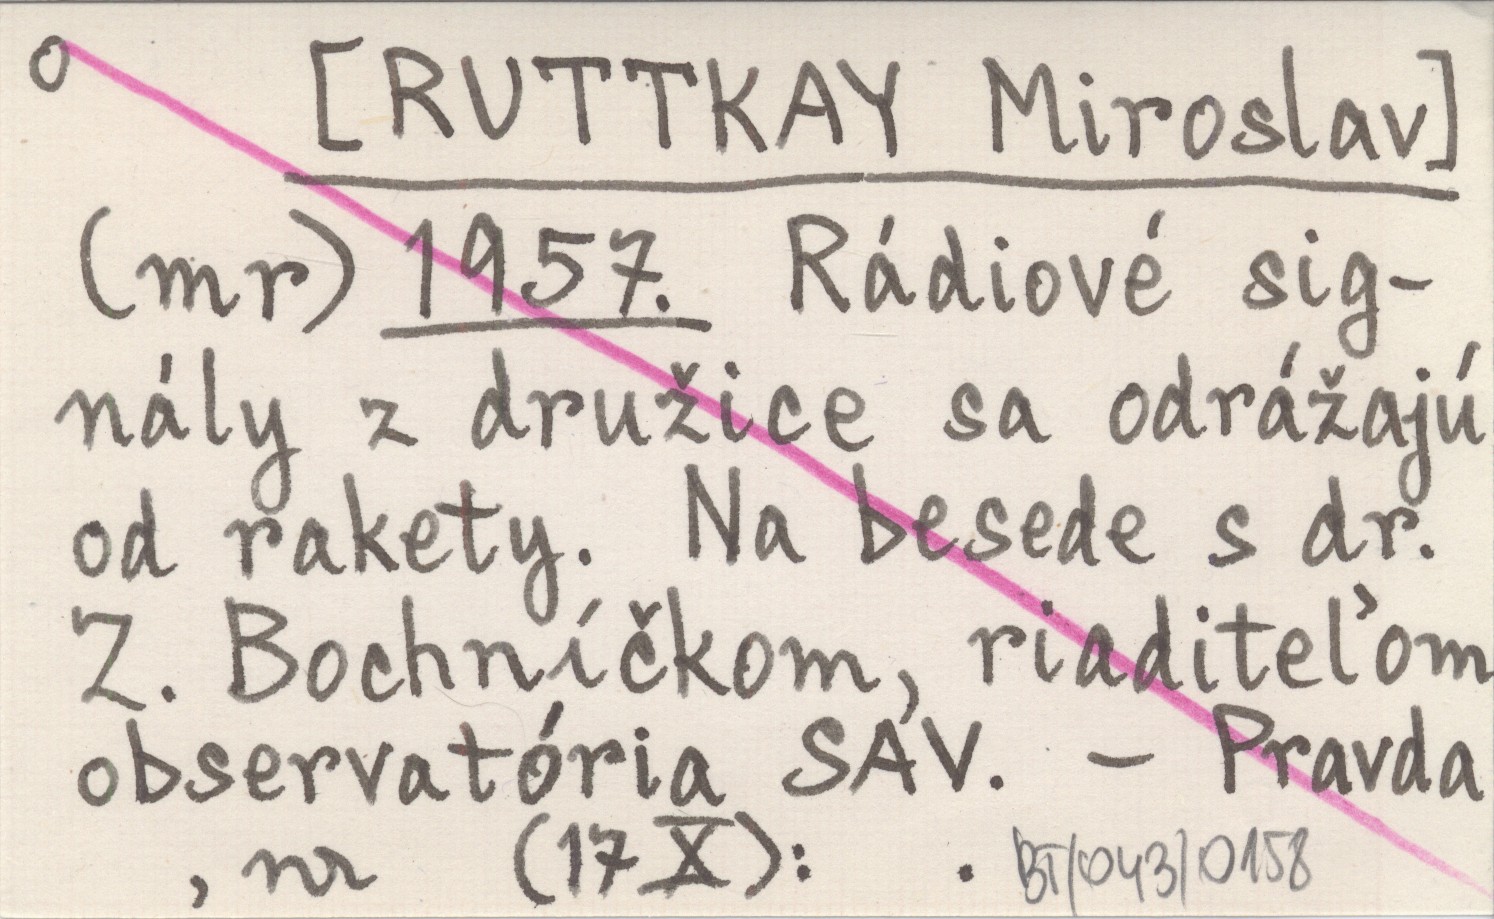 o [RUTTKAY Miroslav]
(mr) 1957. Rádiové sig-
nály z družice sa odrážajú
od rakety. Na besede s dr.
Z. Bochníčkom, riaditeľom
observatória SAV. – Pravda
, nr (17 X): . BT/043/0158